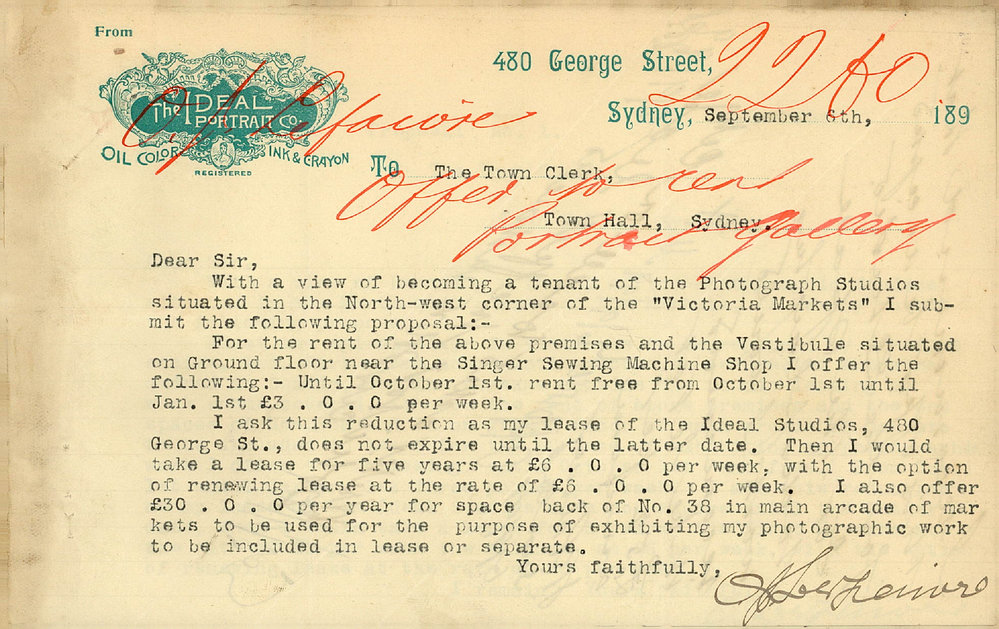 From
480 George Street,
2260
The IDEAL
PORTRAIT Co.
OIL COLOR INK & CRAYON
REGISTERED
Sydney, September 6th, 189
To The Town Clerk,
Offer to rent
Town Hall, Sydney.
Portrait Gallery
Dear Sir,
With a view of becoming a tenant of the Photograph Studios
situated in the North-west corner of the "Victoria Markets" I sub-
mit the following proposal:-
For the rent of the above premises and the Vestibule situated
on Ground floor near the Singer Sewing Machine Shop I offer the
following:- Until October 1st. rent free from October 1st until
Jan. 1st £3 . 0 . 0 per week.
I ask this reduction as my lease of the Ideal Studios, 480
George St., does not expire until the latter date. Then I would
take a lease for five years at £6 . 0 . 0 per week, with the option
of renewing lease at the rate of £6 . 0 . 0 per week. I also offer
£30 . 0 . 0 per year for space back of No. 38 in main arcade of mar
kets to be used for the purpose of exhibiting my photographic work
to be included in lease or separate.
Yours faithfully,